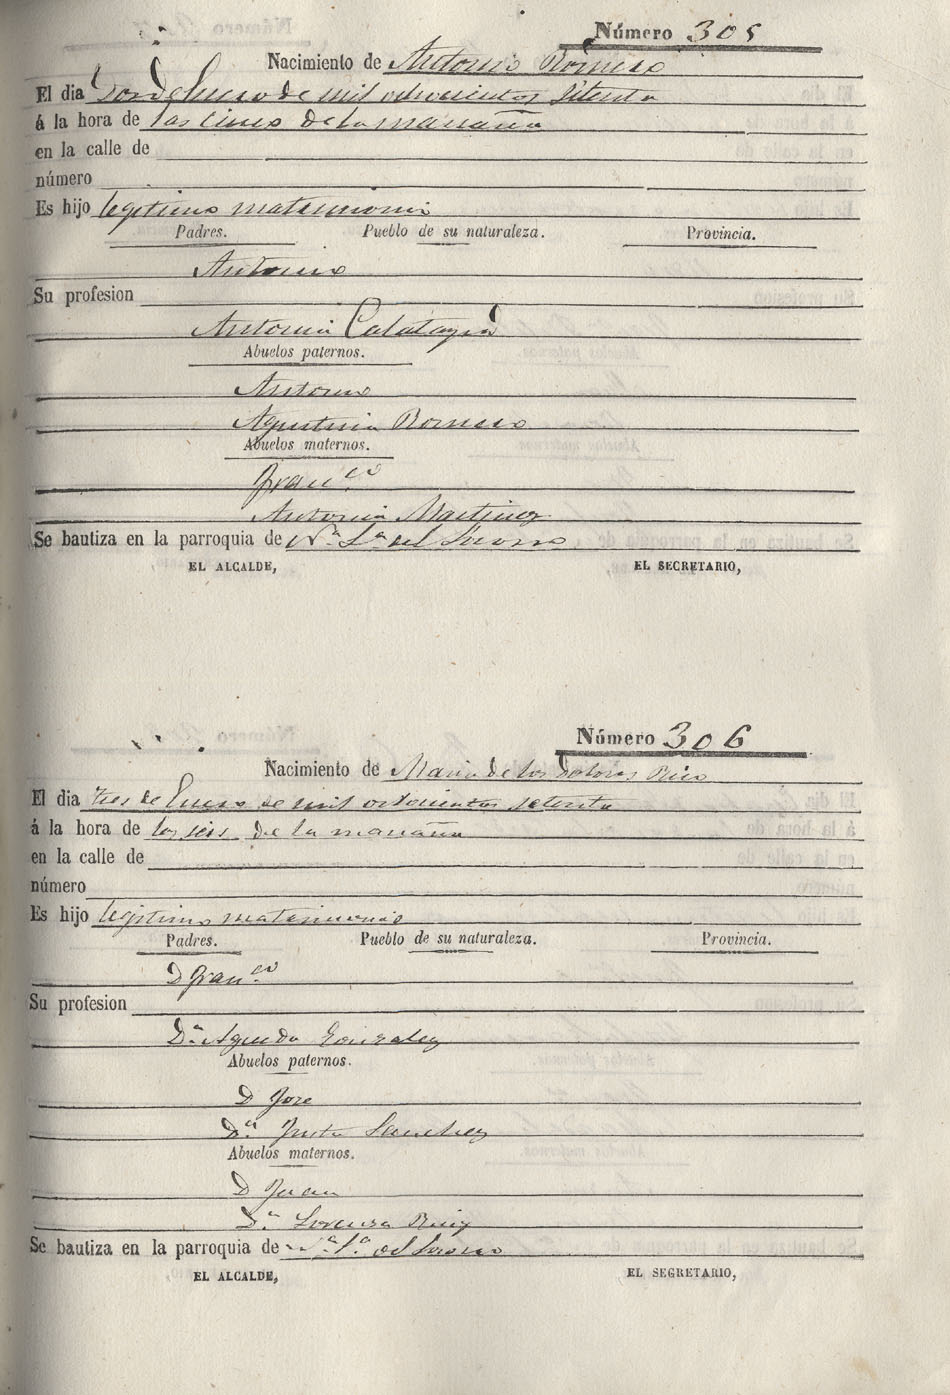 Número 305
Nacimiento de Antonio Romero
El dia Dos de Enero de mil ochocientos setenta
á la hora de las cinco de la mañana
en la calle de
número
Es hijo legitimo matrimonio
Padres. Pueblo de su naturaleza. Provincia.
Antonio
Su profesion
Antonia Calatayud
Abuelos paternos.
Antonio
Agustina Romero
Abuelos maternos.
Franco
Antonia Martinez
Se bautiza en la parroquia de Na Sa del Socorro
EL ALCALDE, EL SECRETARIO,
Número 306
Nacimiento de Maria de los Dolores Rico
El dia tres de Enero de mil ochocientos setenta
á la hora de las seis de la mañana
en la calle de
número
Es hijo legitimo matrimonio
Padres. Pueblo de su naturaleza. Provincia.
D Franco
Su profesion
Da Agueda Gonzalez
Abuelos paternos.
D Jose
Da Justa Sanchez
Abuelos maternos.
D Juan
Da Lorenza Ruiz
Se bautiza en la parroquia de Na Sa del Socorro
EL ALCALDE, EL SEGRETARIO,